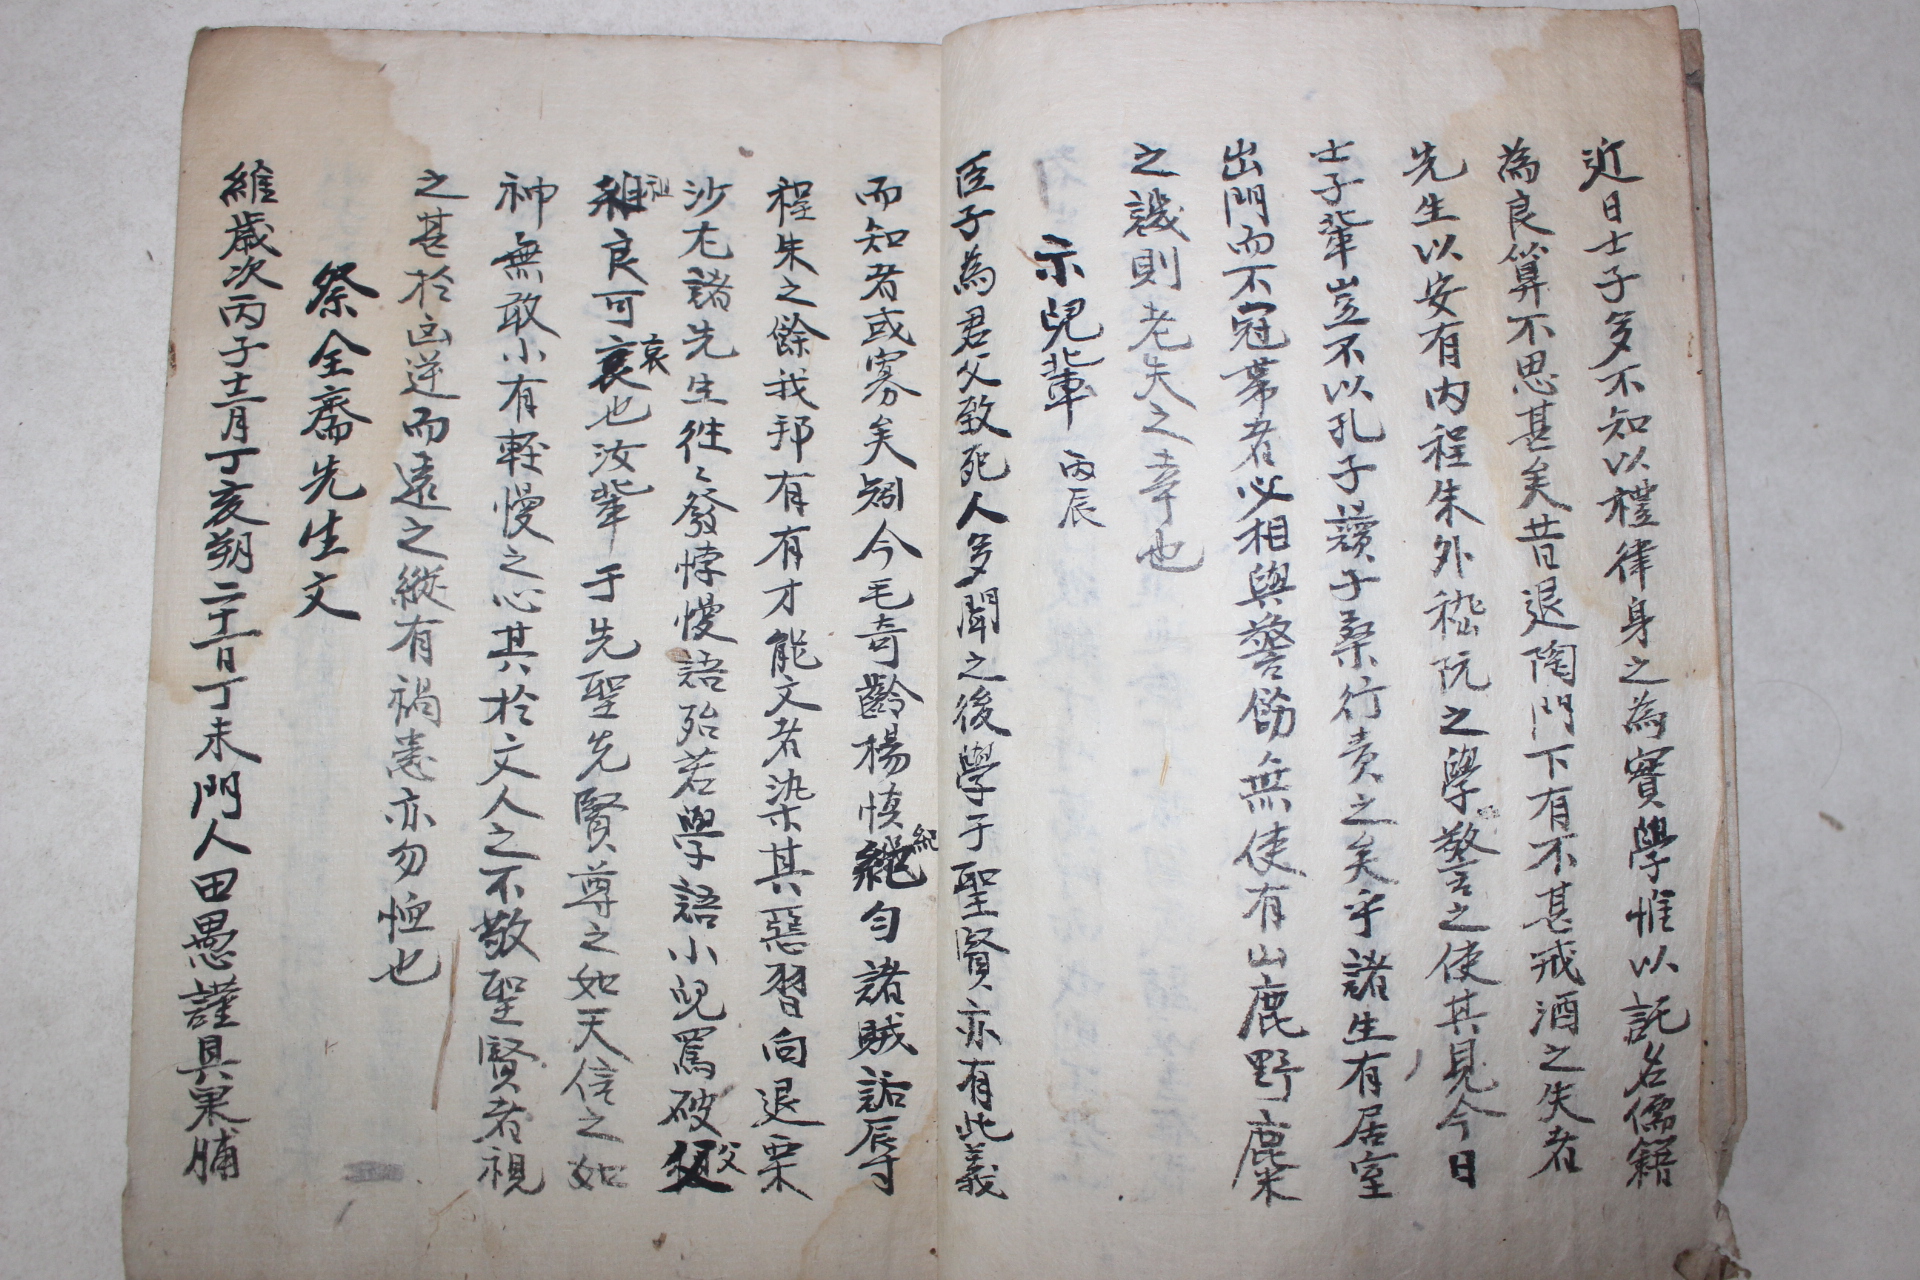 近日士子多不知以禮律身之為實學惟以託名儒籍
為良算不思甚矣昔退陶門下有不甚戒酒之失者
先生以安有內程朱外嵇阮之學警之使其見今日
士子輩豈不以孔子讀子桑行責之矣乎諸生有居室
出門而不冠帶者必相與警飭無使有山鹿野麋
之譏則老夫之幸也
示兒輩 丙辰
臣子為君父致死人多聞之後學于聖賢亦有此義
而知者或寡矣矧今毛奇齡楊慎紀勻諸賊詬辱
程朱之餘我邦有有才能文者染其惡習向退栗
沙尤諸先生往〻發悖慢語殆若學語小兒罵破父
祖良可哀也汝輩于先聖先賢尊之如天信之如
神無敢小有輕慢之心其於文人之不敬聖賢者視
之甚於凶逆而遠之縱有禍患亦勿恤也
祭全齋先生文
維歲次丙子十二月丁亥朔二十一日丁未門人田愚謹具果脯